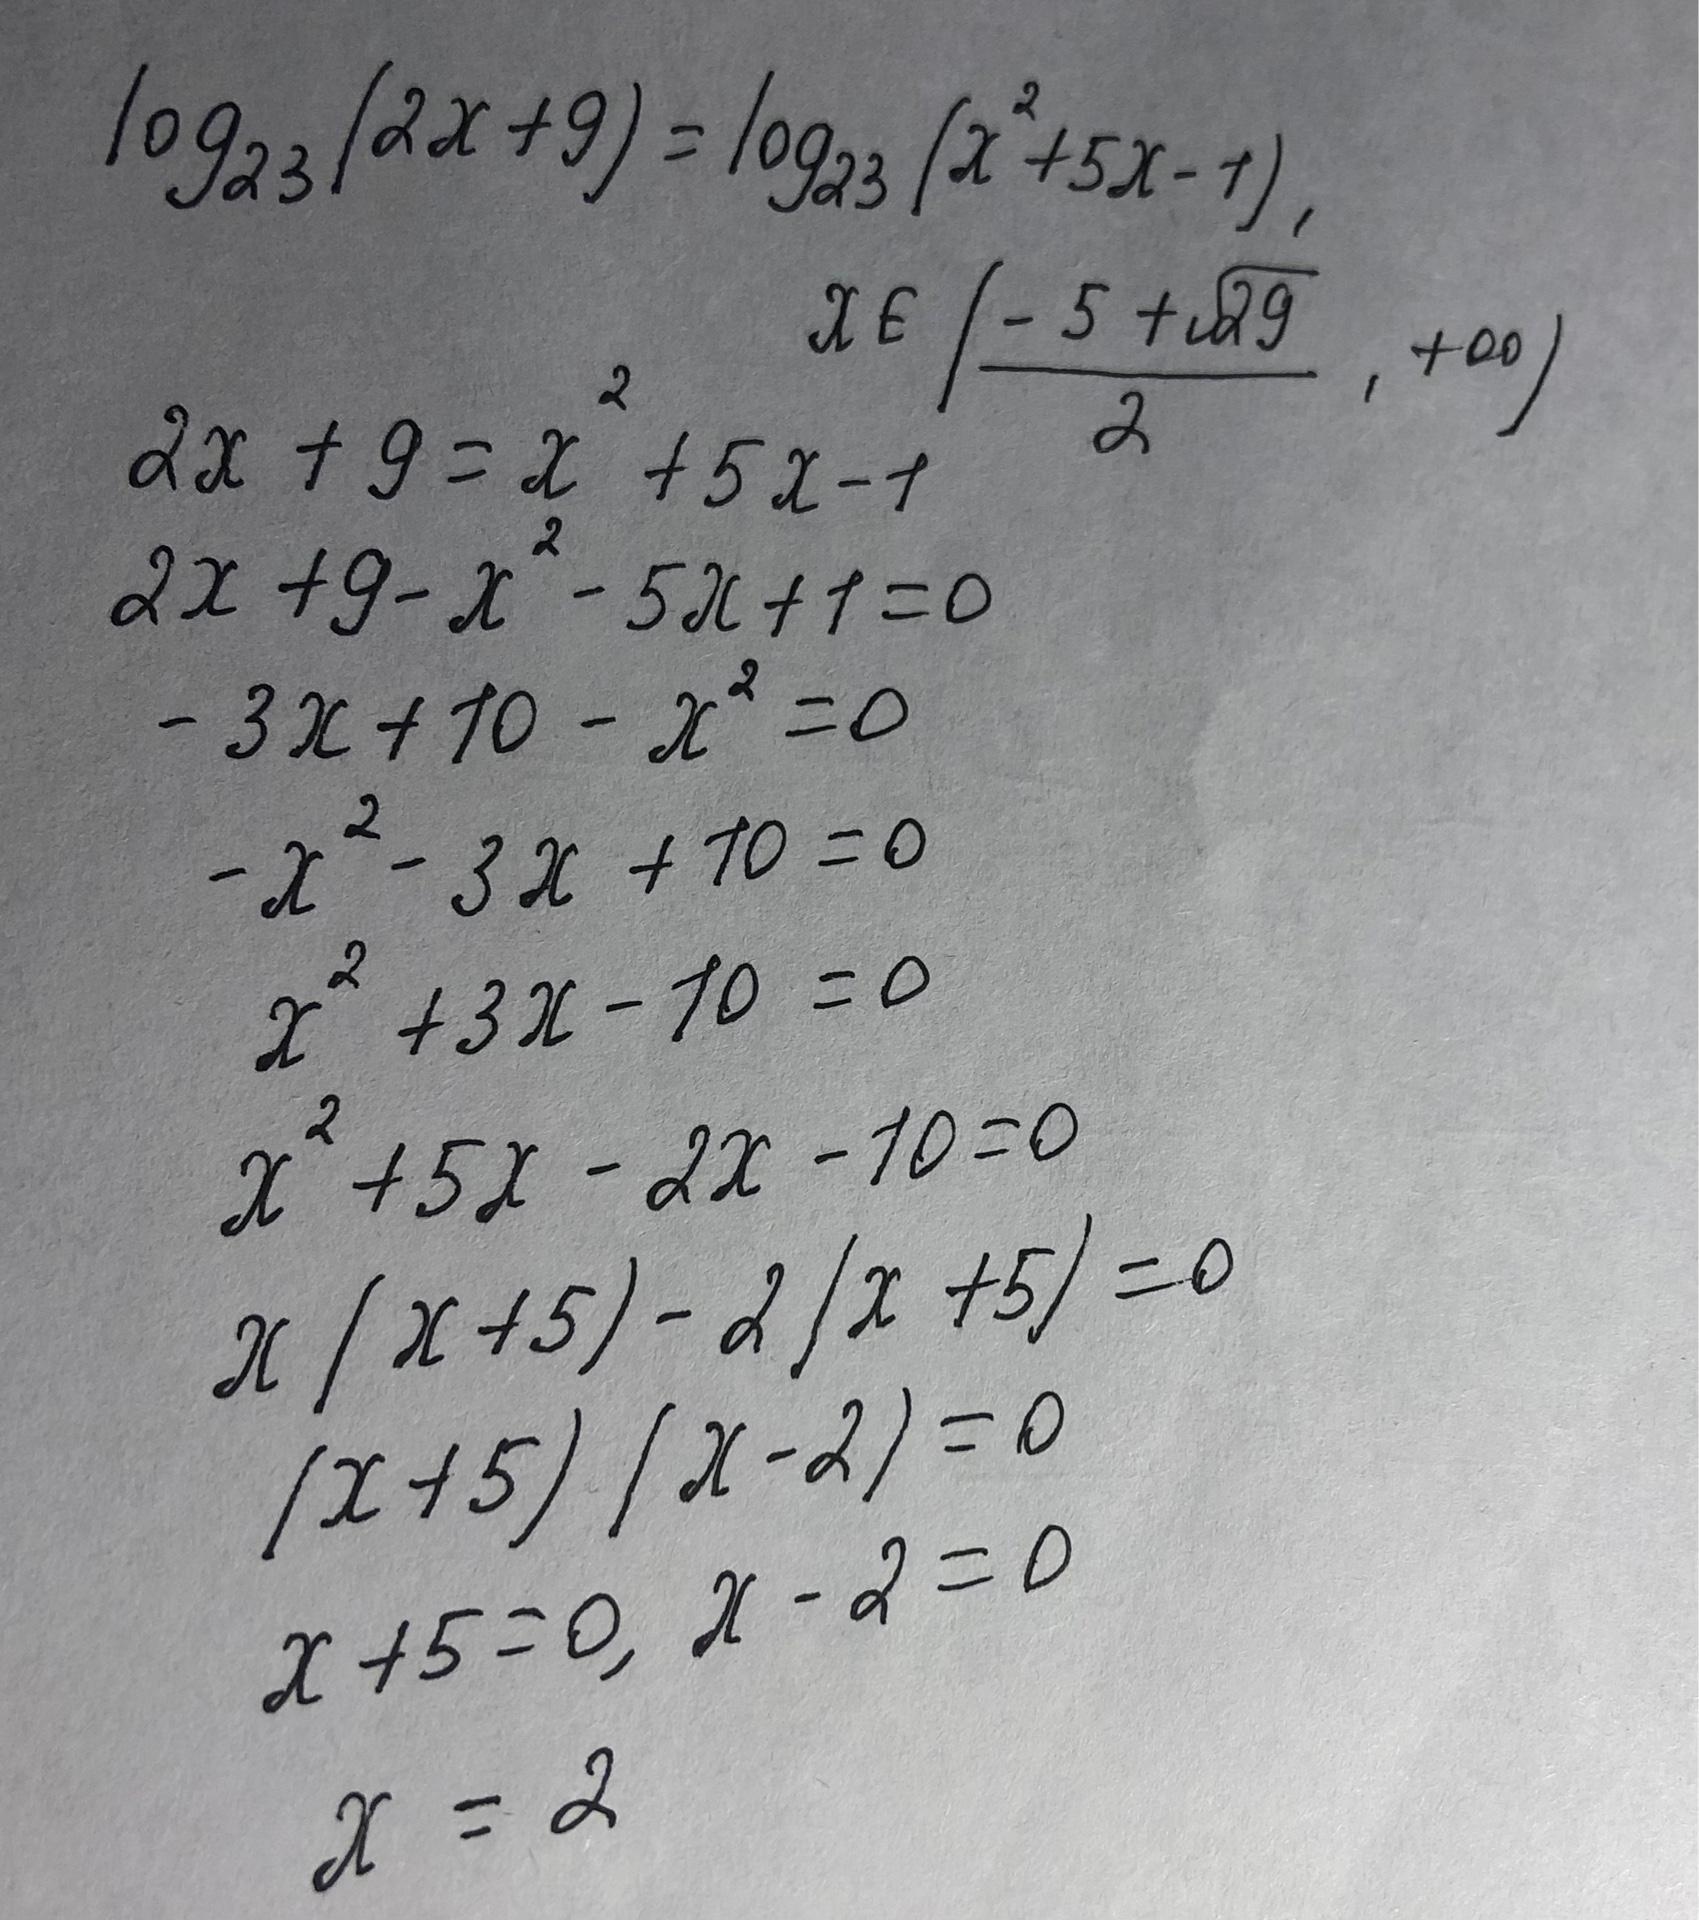 log₂₃(2x+9)=log₂₃(x²+5x-1),
x∈(-5+√29/2, +∞)
2x+9=x²+5x-1
2x+9-x²-5x+1=0
-3x+10-x²=0
-x²-3x+10=0
x²+3x-10=0
x²+5x-2x-10=0
x(x+5)-2(x+5)=0
(x+5)(x-2)=0
x+5=0, x-2=0
x=2